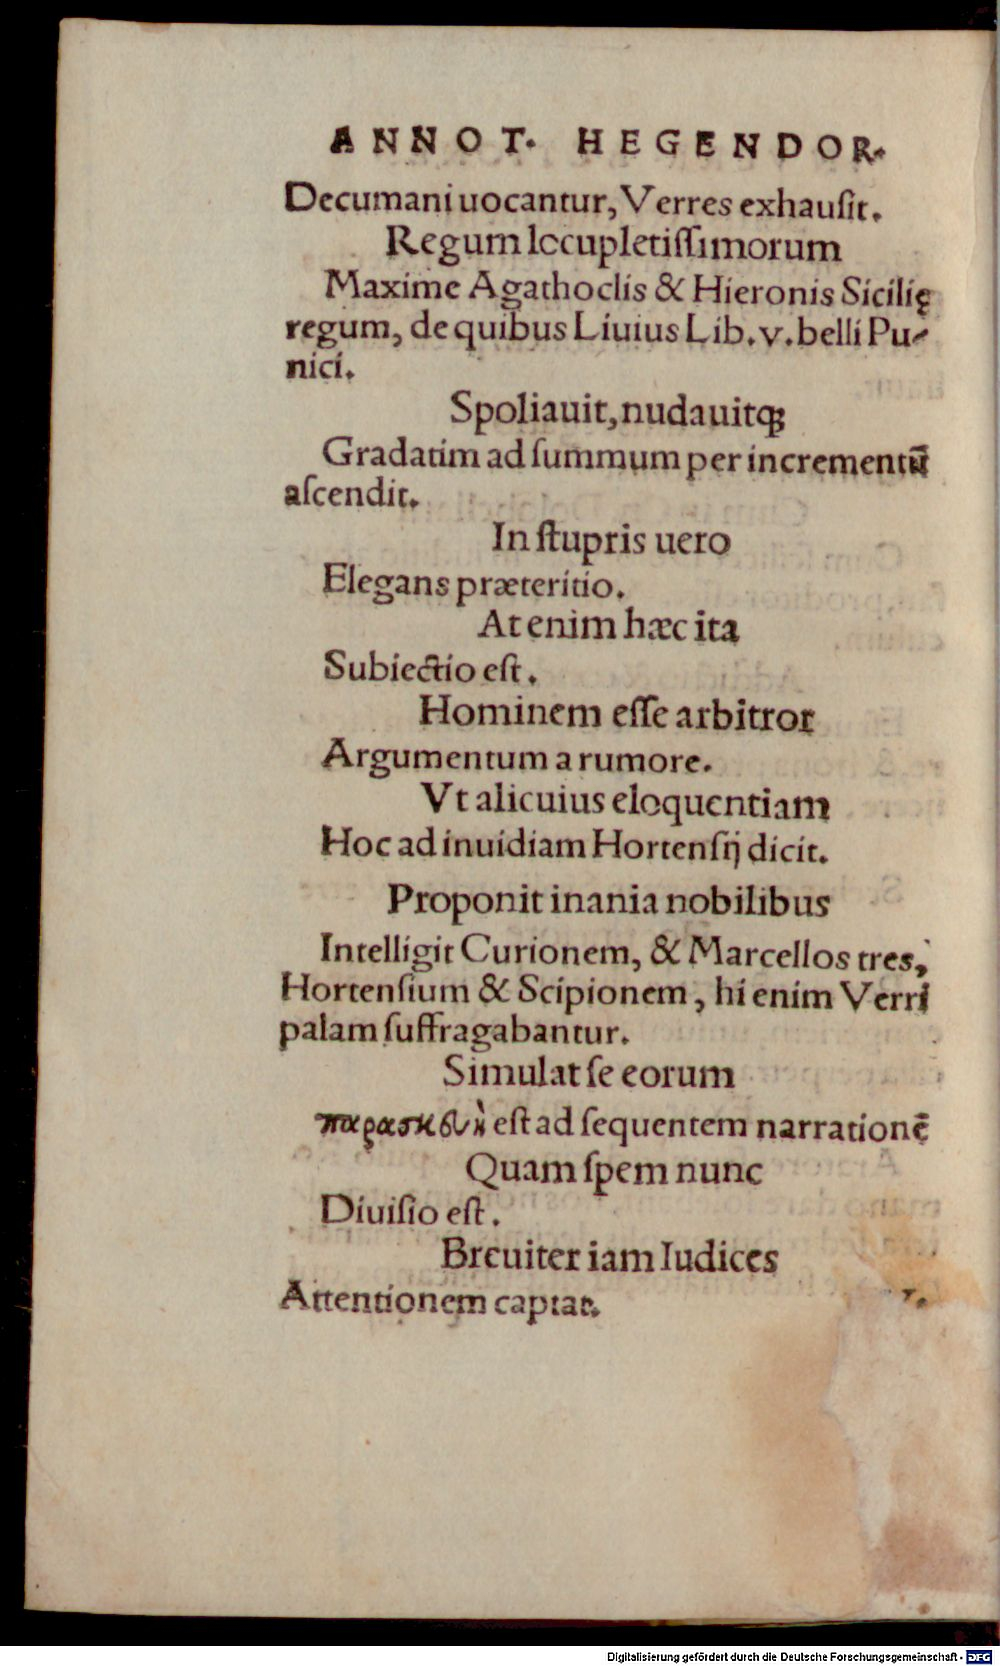 ANNOT. HEGENDOR.
Decumani uocantur, Verres exhauſit.
Regum locupletiſſimorum
Maxime Agathoclis & Hieronis Sicilię
regum, de quibus Liuius Lib. v. belli Pu-
nici.
Spoliauit, nudauitꝗ
Gradatim ad ſummum per incrementū
aſcendit.
In ſtupris uero
Elegans præteritio.
At enim hæc ita
Subiectio eſt.
Hominem eſſe arbitror
Argumentum a rumore.
Vt alicuius eloquentiam
Hoc ad inuidiam Hortenſij dicit.
Proponit inania nobilibus
Intelligit Curionem, & Marcellos tres,
Hortenſium & Scipionem, hi enim Verri
palam ſuffragabantur.
Simulat ſe eorum
παρασκευὴ eſt ad ſequentem narrationē
Quam ſpem nunc
Diuiſio eſt.
Breuiter iam Iudices
Attentionem captat.
Digitalisierung gefördert durch die Deutsche Forschungsgemeinschaft - DFG